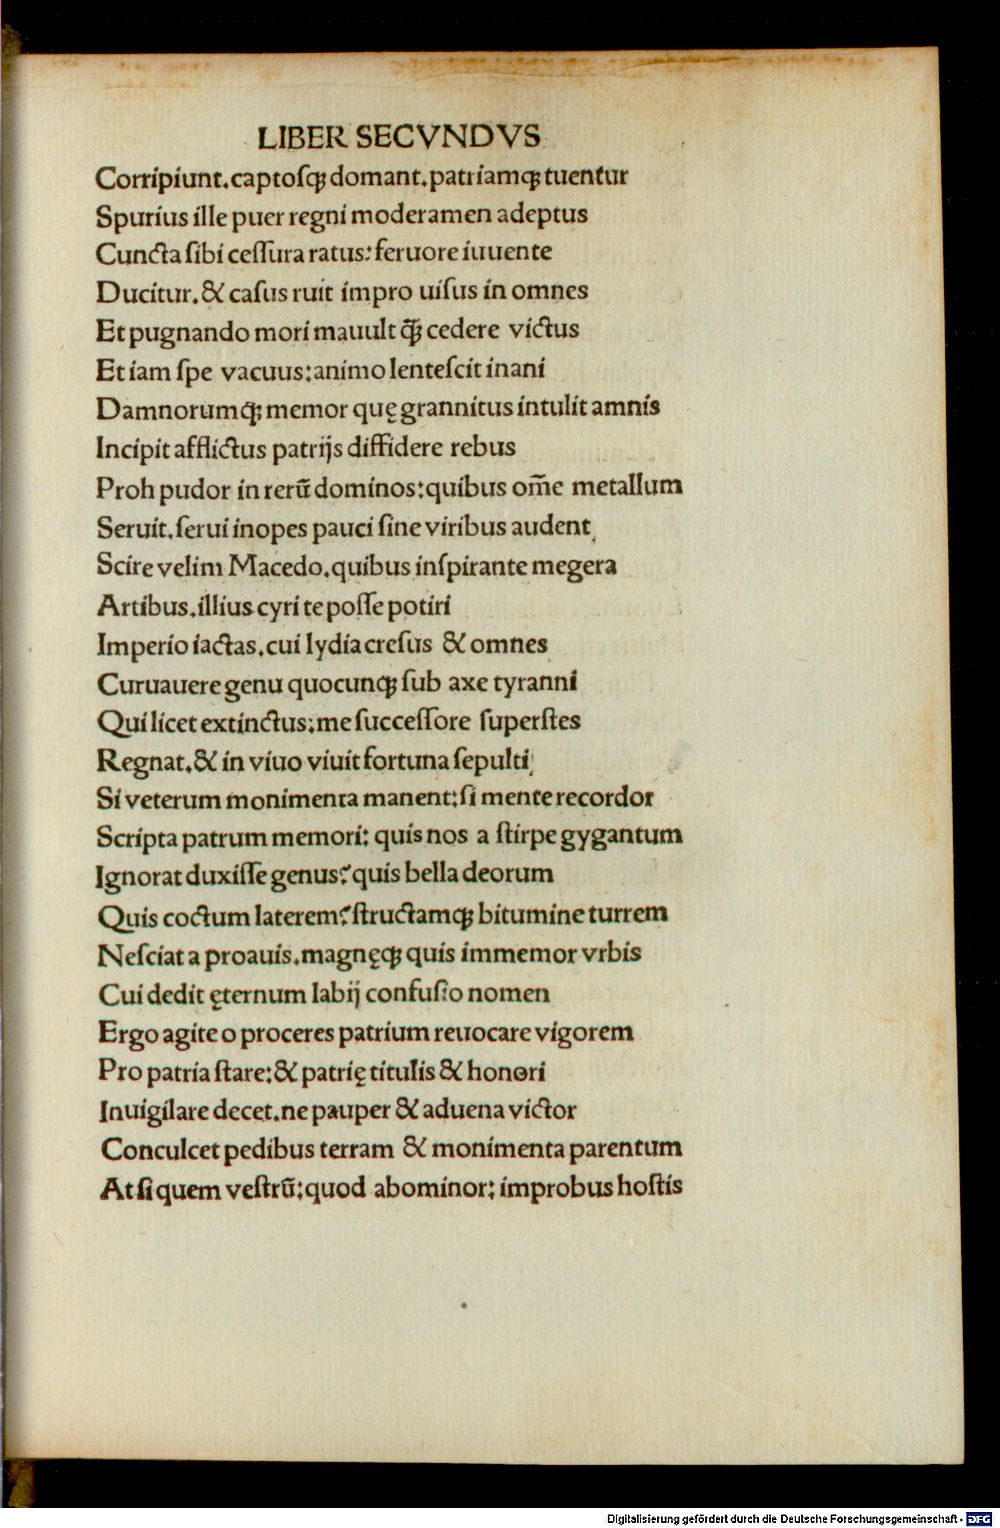 LIBER SECVNDVS
Corripiunt.captoſqꝫ domant.patriamqꝫ tuentur
Spurius ille puer regni moderamen adeptus
Cuncta ſibi ceſſura ratus:feruore iuuente
Ducitur.& caſus ruit impro uiſus in omnes
Et pugnando mori mauult q̃ꝫ cedere victus
Et iam ſpe vacuus:animo lenteſcit inani
Damnorumqꝫ memor quę grannitus intulit amnis
Incipit afflictus patrijs diffidere rebus
Proh pudor in rerũ dominos:quibus om̃e metallum
Seruit.ſerui inopes pauci ſine viribus audent
Scire velim Macedo.quibus inſpirante megera
Artibus.illius cyri te poſſe potiri
Imperio iactas.cui lydia creſus & omnes
Curuauere genu quocunqꝫ ſub axe tyranni
Qui licet extinctus:me ſucceſſore ſuperſtes
Regnat.& in viuo viuit fortuna ſepulti
Si veterum monimenta manent:ſi mente recordor
Scripta patrum memori: quis nos a ſtirpe gygantum
Ignorat duxiſſe genus?quis bella deorum
Quis coctum laterem?ſtructamqꝫ bitumine turrem
Neſciat a proauis.magnęqꝫ quis immemor vrbis
Cui dedit ęternum labij confuſio nomen
Ergo agite o proceres patrium reuocare vigorem
Pro patria ſtare:& patrię titulis & honori
Inuigilare decet.ne pauper & aduena victor
Conculcet pedibus terram & monimenta parentum
At ſi quem veſtrũ:quod abominor: improbus hoſtis
Digitalisierung gefördert durch die Deutsche Forschungsgemeinschaft - DFG